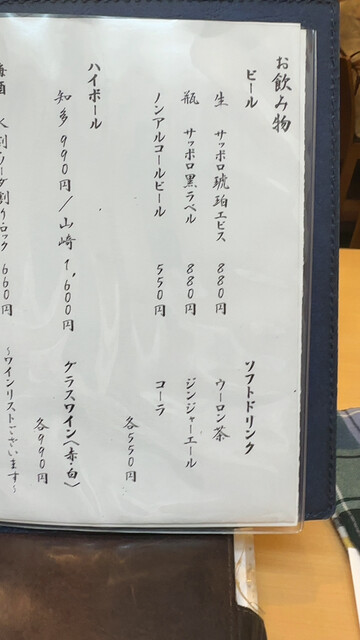 お飲み物
ビール
生 サッポロ琥珀エビス 880円
瓶 サッポロ黒ラベル 880円
ノンアルコールビール 550円
ハイボール
知多 990円/山崎 1,600円
梅酒 水割・ソーダ割・ロック 660円
ソフトドリンク
ウーロン茶
ジンジャーエール
コーラ
各550円
グラスワイン(赤・白)
各990円
~ワインリストございます~